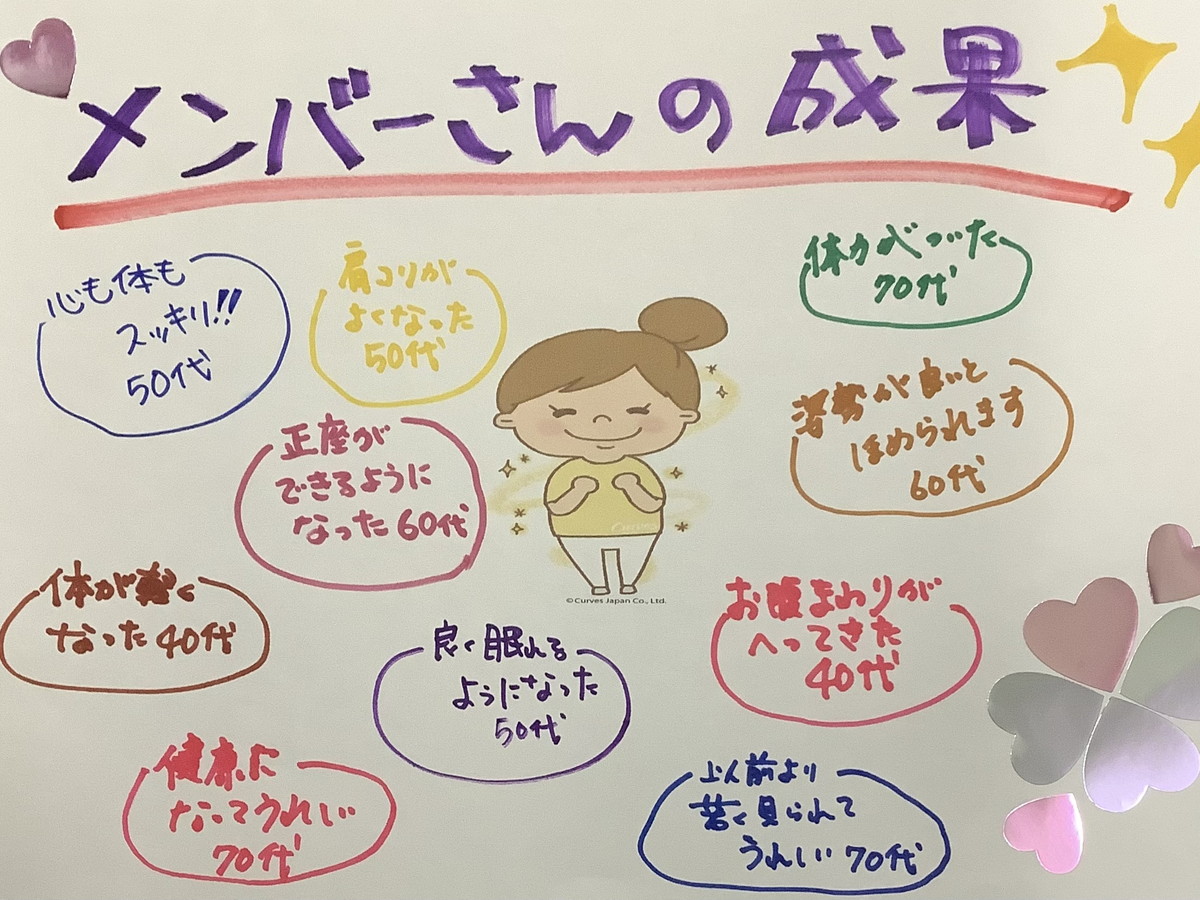 メンバーさんの成果
心も体も
スッキリ!!
50代
肩コリが
よくなった
50代
体力がついた
70代
正座が
できるように
なった 60代
姿勢が良いと
ほめられます
60代
Curves
©Curves Japan Co., Ltd.
体が軽く
なった 40代
良く眠れる
ようになった
50代
お腹まわりが
へってきた
40代
健康に
なってうれしい
70代
以前より
若く見られて
うれしい 70代